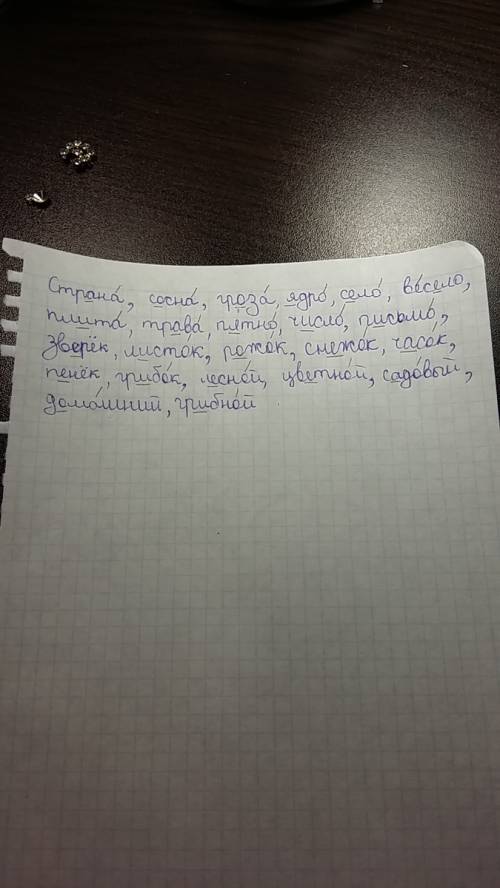 Страна́, сосна́, гроза́, ядро́, село́, ве́село,
плита́, трава́ пятно́, число́, письмо́,
Зверёк, листо́к, рожо́к, снежо́к, часо́к,
пенёк, грибо́к, лесно́й, цветно́й, садо́вый,
дома́шний, грибно́й